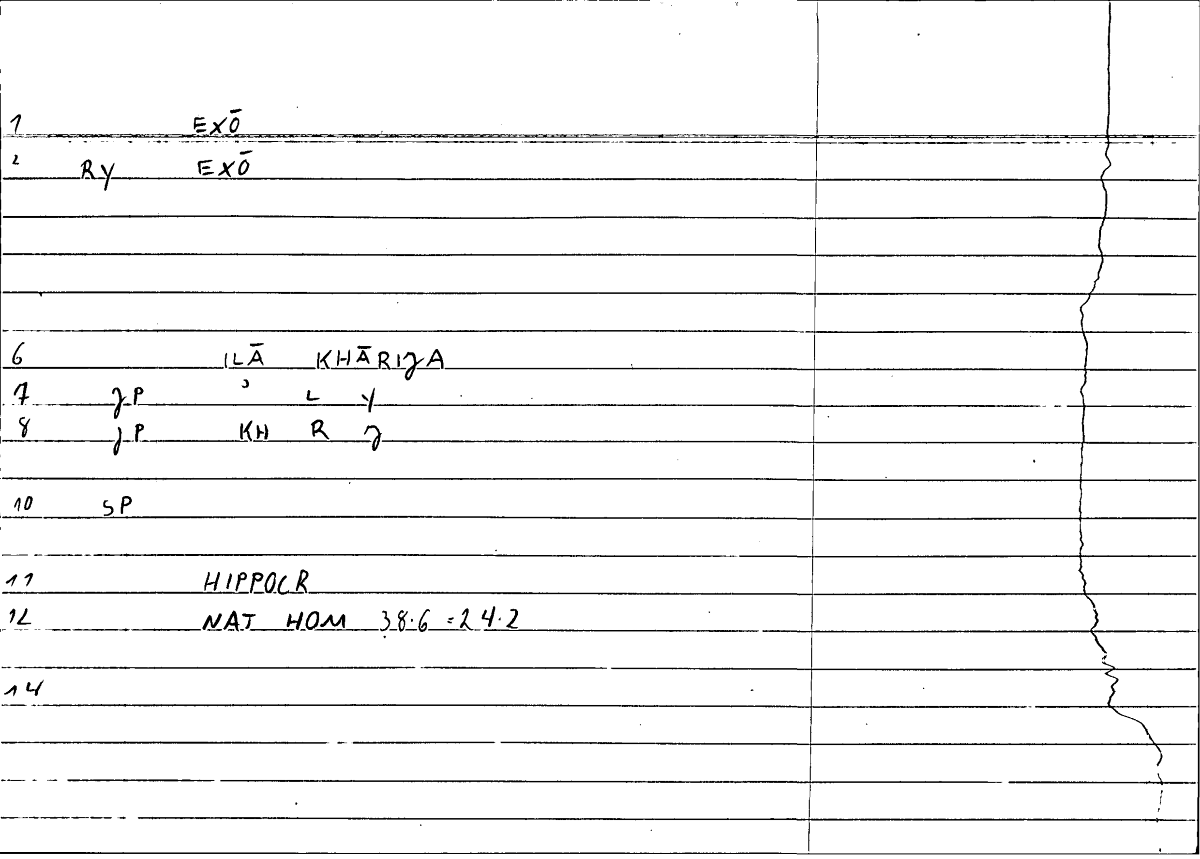 1 EXŌ
2 RY EXŌ
6 ILĀ KHĀRIJA
7 JP ʾ L Y
8 JP KH R J
10 SP
11 HIPPOCR
12 NAT HOM 38.6 = 24.2
14